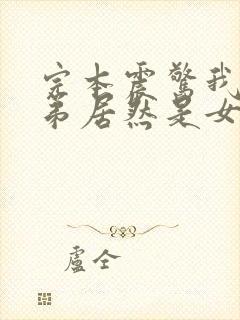 完本震驚我
弟居然是女
盧仝